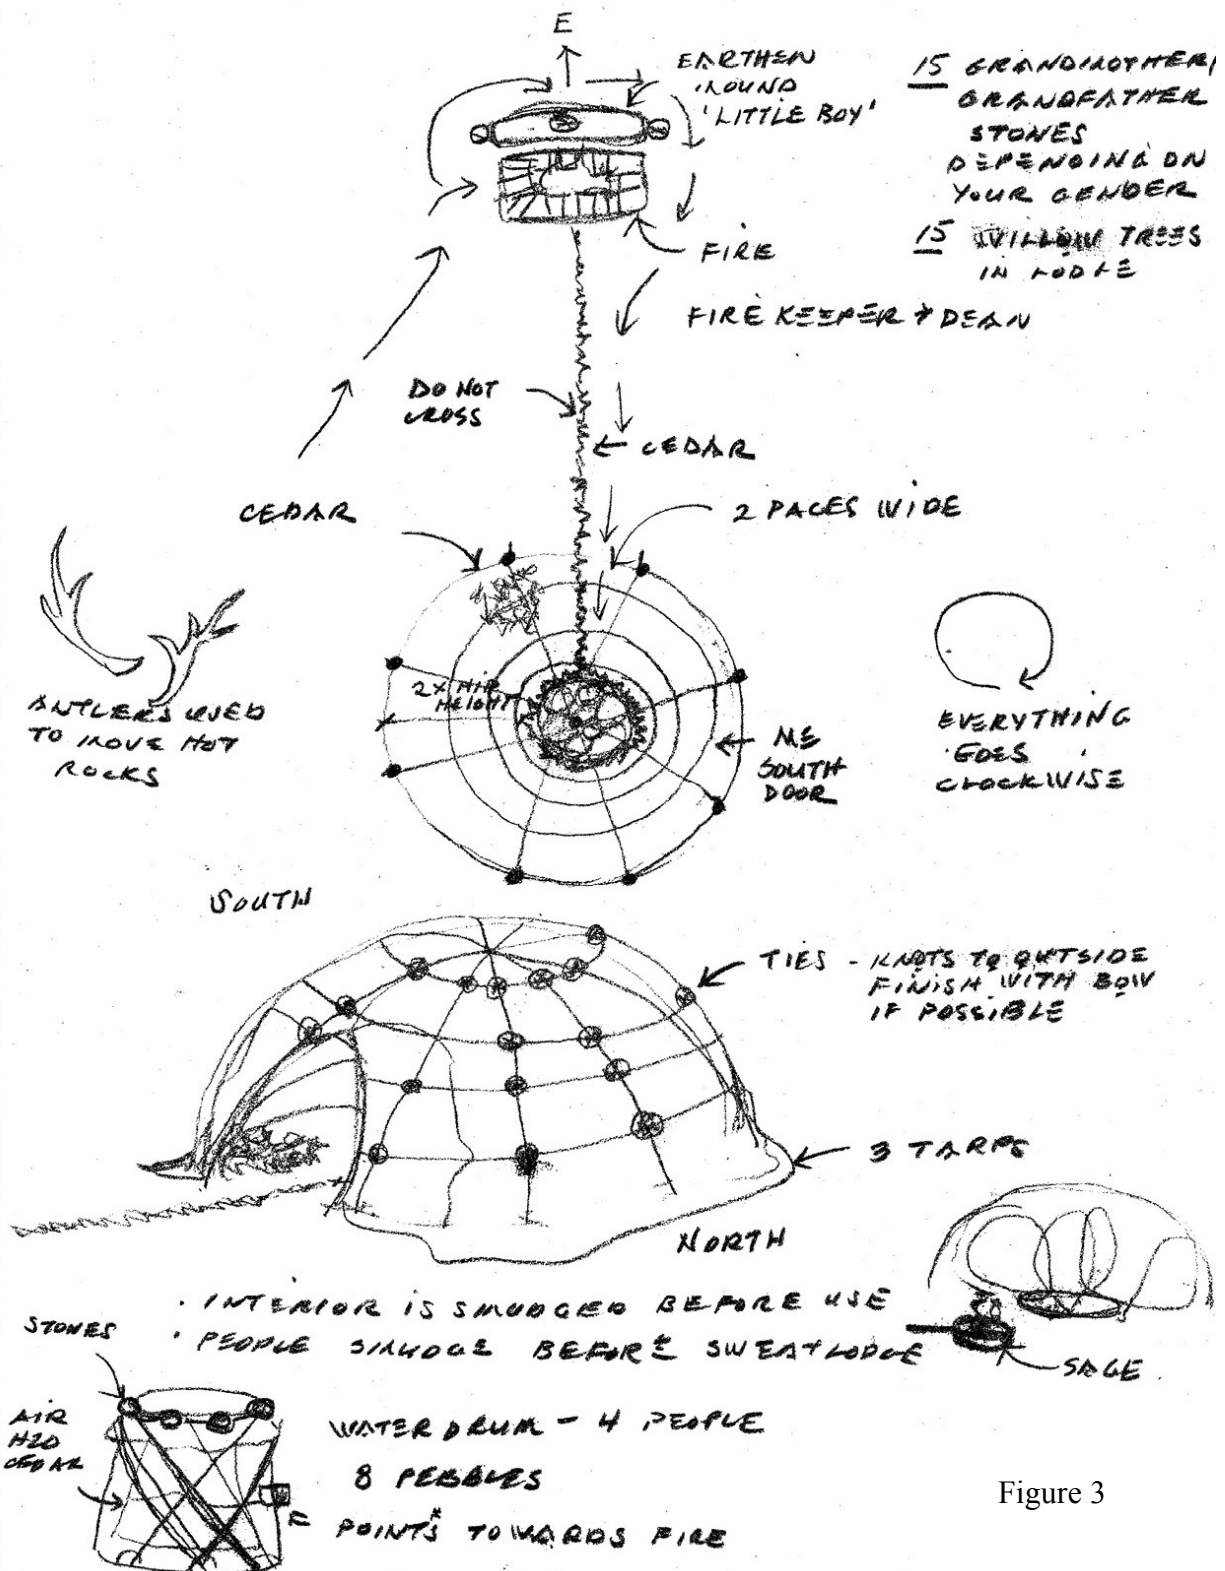 E
EARTHEN
MOUND
'LITTLE BOY'
15 GRANDMOTHER/
GRANDFATHER
STONES
DEPENDING ON
YOUR GENDER
15 WILLOW TREES
IN LODGE
FIRE
FIRE KEEPER + DEAN
DO NOT
CROSS
CEDAR
CEDAR
2 PACES WIDE
2X HIP
HEIGHT
ANTLERS USED
TO MOVE HOT
ROCKS
ME
SOUTH
DOOR
EVERYTHING
GOES
CLOCKWISE
SOUTH
TIES - KNOTS TO OUTSIDE
FINISH WITH BOW
IF POSSIBLE
3 TARPS
NORTH
· INTERIOR IS SMUDGED BEFORE USE
· PEOPLE SMUDGE BEFORE SWEATLODGE
SAGE
STONES
AIR
H2O
CEDAR
WATER DRUM - 4 PEOPLE
8 PEBBLES
= POINTS TOWARDS FIRE
Figure 3